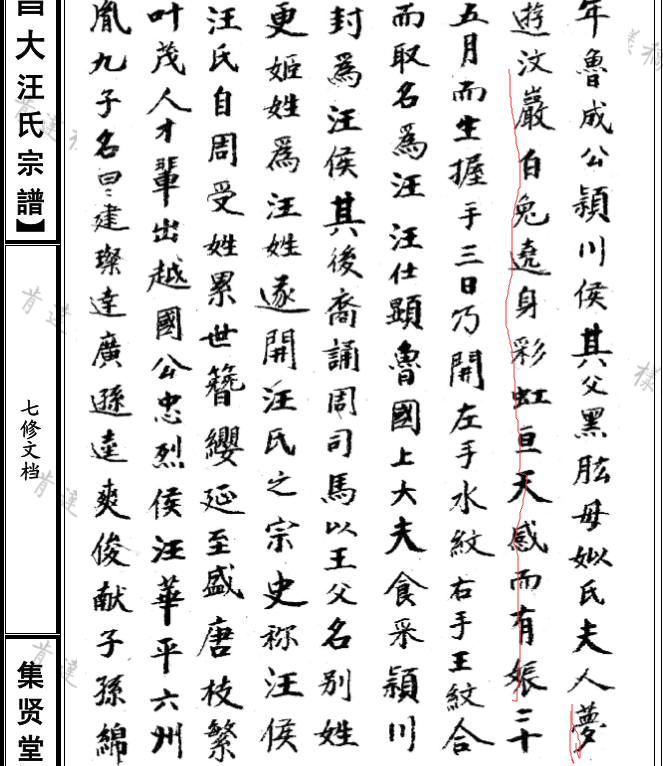 年魯成公穎川侯其父黑肱母姒氏夫人夢
遊汶巖白兔遶身彩虹亘天感而有娠二十
五月而生握手三日乃開左手水紋右手王紋合
而取名為汪汪仕顯魯國上大夫食采穎川
封為汪侯其後裔誦周司馬以王父名別姓
更姬姓為汪姓遂開汪氏之宗史祢汪侯
汪氏自周受姓累世簪纓延至盛唐枝繁
叶茂人才輩出越國公忠烈侯汪華平六州
胤九子名曰建璨達廣遜逵爽俊献子孫綿
昌大汪氏宗譜】
七修文档
集贤堂
肯達
肯達
肯達
肯達
樣稿
樣